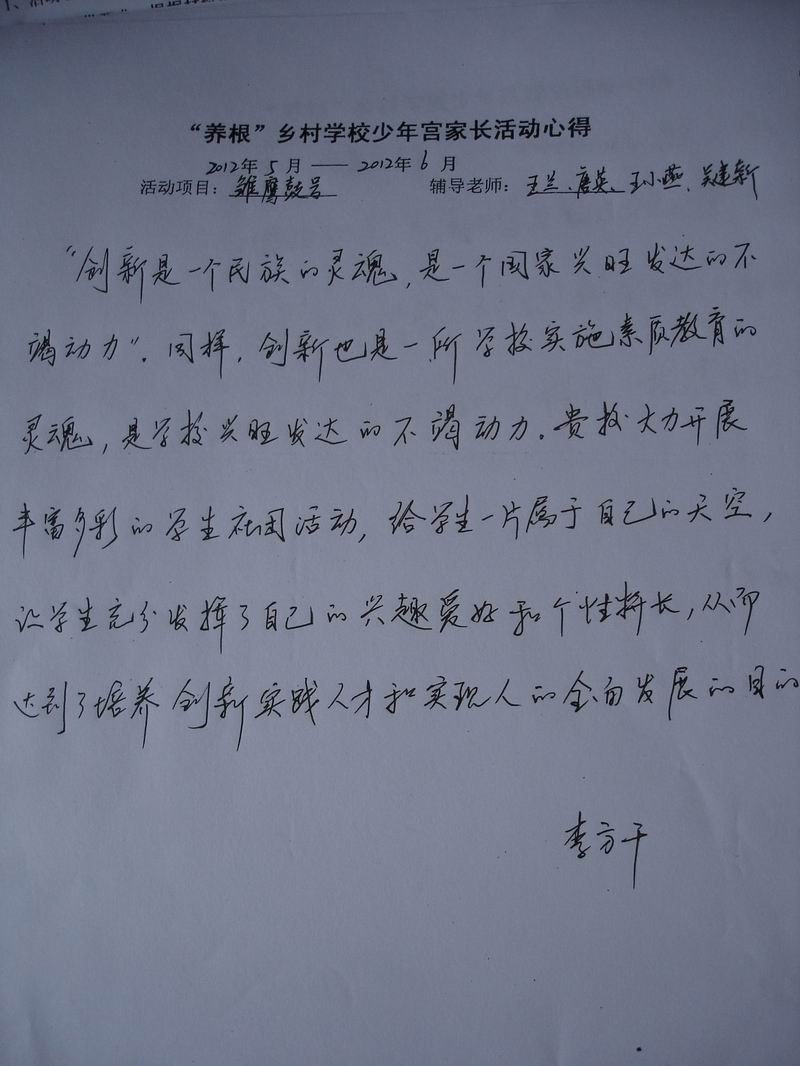 “养根”乡村学校少年宫家长活动心得
2012年5月——2012年6月
活动项目：雏鹰鼓号 辅导老师：王兰、唐英、王小燕、吴建新
“创新是一个民族的灵魂，是一个国家兴旺发达的不
竭动力”。同样，创新也是一所学校实施素质教育的
灵魂，是学校兴旺发达的不竭动力。贵校大力开展
丰富多彩的学生社团活动，给学生一片属于自己的天空，
让学生充分发挥了自己的兴趣爱好和个性特长，从而
达到了培养创新实践人才和实现人的全面发展的目的
李方干